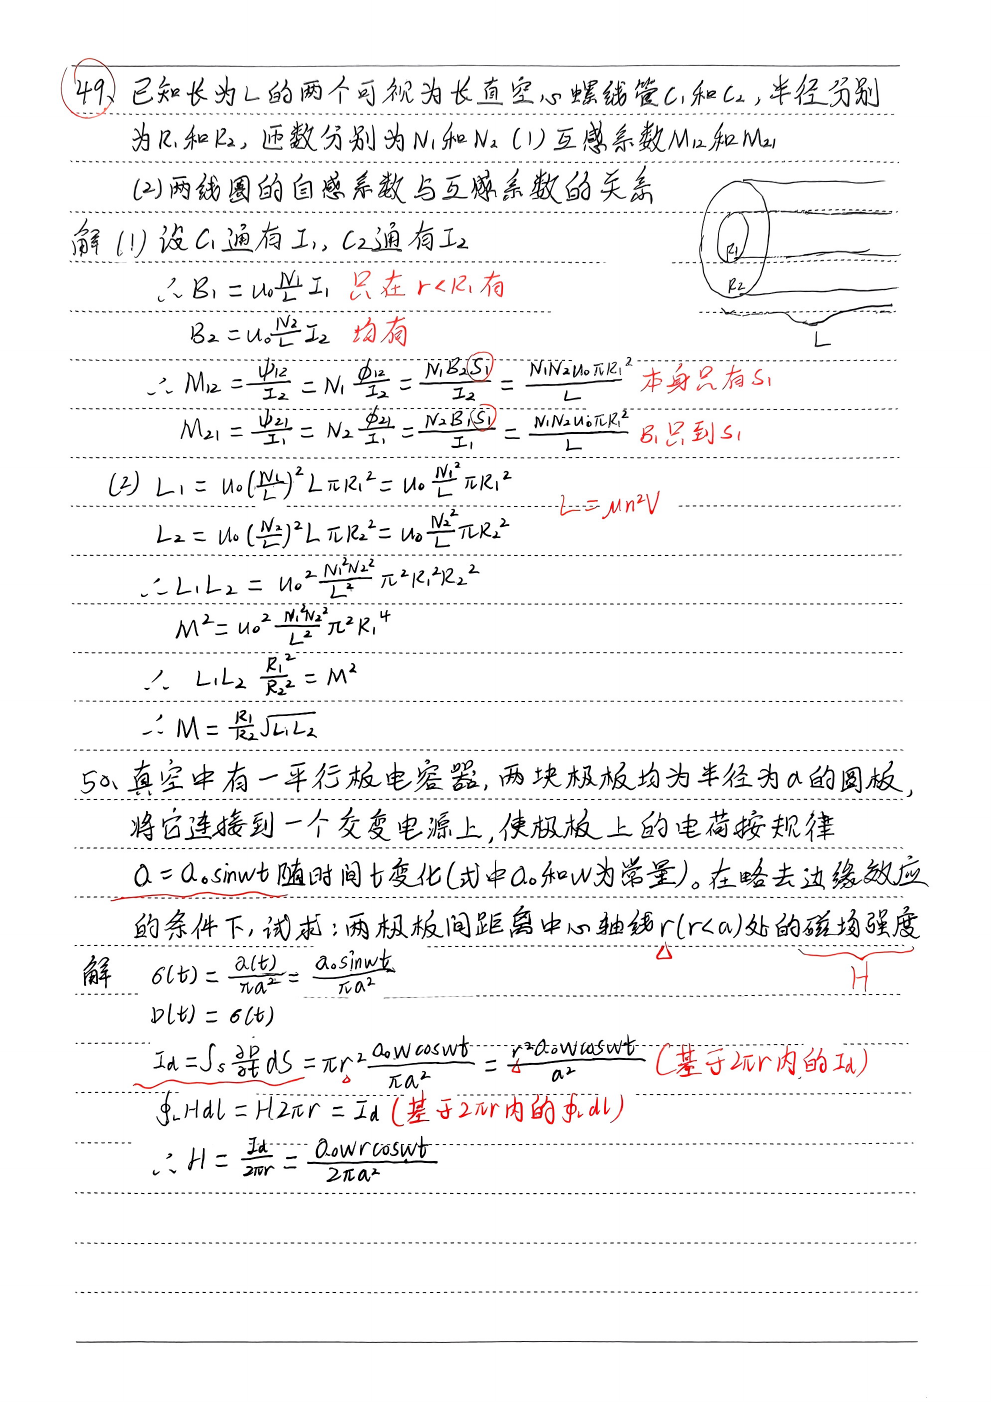 49、已知长为L的两个可视为长直空心螺线管C₁和C₂,半径分别
为R₁和R₂,匝数分别为N₁和N₂ (1)互感系数M₁₂和M₂₁
(2)两线圈的自感系数与互感系数的关系
解 (1) 设C₁通有I₁, C₂通有I₂
∴ B₁ = u₀ N₁/L I₁ 只在 r<R₁有
B₂ = u₀ N₂/L I₂ 均有
R₁
R₂
L
∴ M₁₂ = ψ₁₂/I₂ = N₁ Φ₁₂/I₂ = N₁B₂S₁/I₂ = N₁N₂u₀πR₁²/L 本身只有S₁
M₂₁ = ψ₂₁/I₁ = N₂ Φ₂₁/I₁ = N₂B₁S₁/I₁ = N₁N₂u₀πR₁²/L B₁只到S₁
(2) L₁ = u₀(N₁/L)²LπR₁² = u₀ N₁²/L πR₁²
L = μn²V
L₂ = u₀(N₂/L)²LπR₂² = u₀ N₂²/L πR₂²
∴ L₁L₂ = u₀² N₁²N₂²/L² π²R₁²R₂²
M² = u₀² N₁²N₂²/L² π²R₁⁴
∴ L₁L₂ R₁²/R₂² = M²
∴ M = R₁/R₂ √L₁L₂
50、真空中有一平行板电容器,两块极板均为半径为a的圆板,
将它连接到一个交变电源上,使极板上的电荷按规律
Q = Q₀sinwt随时间t变化(式中Q₀和W为常量)。在略去边缘效应
的条件下,试求:两极板间距离中心轴线r(r<a)处的磁场强度
H
解 σ(t) = Q(t)/πa² = Q₀sinwt/πa²
D(t) = σ(t)
Id = ∫s ∂D/∂t dS = πr² Q₀wcoswt/πa² = r²Q₀wcoswt/a² (基于2πr内的Id)
∮L Hdl = H2πr = Id (基于2πr内的∮L dl)
∴ H = Id/2πr = Q₀wrcoswt/2πa²